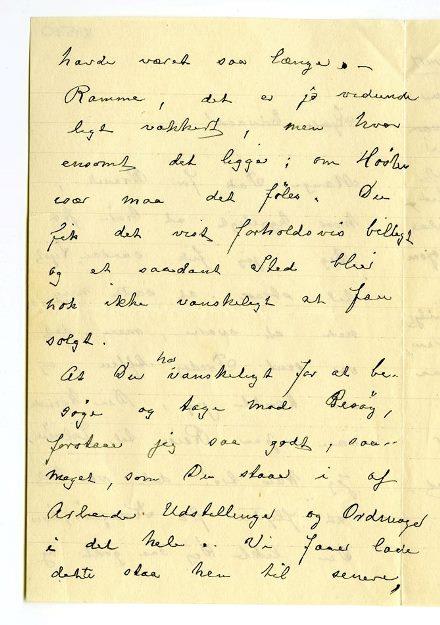 havde været saa længe. –
Ramme, det er jo vidunder
ligt vakkert, men hvor
ensomt det ligger; om Høsten
især maa det føles. Du
fik det vist forholdsvis billigt
og et saadant Sted blir
nok ikke vanskeligt at faa
solgt.
At Du har vanskeligt for at be-
søge og tage mod Besøg,
forstaar jeg saa godt, saa-
meget, som Du staar i af
Arbeide Udstillinger og Ordninger
i det hele. Vi faar lade
dette staa hen til senere,